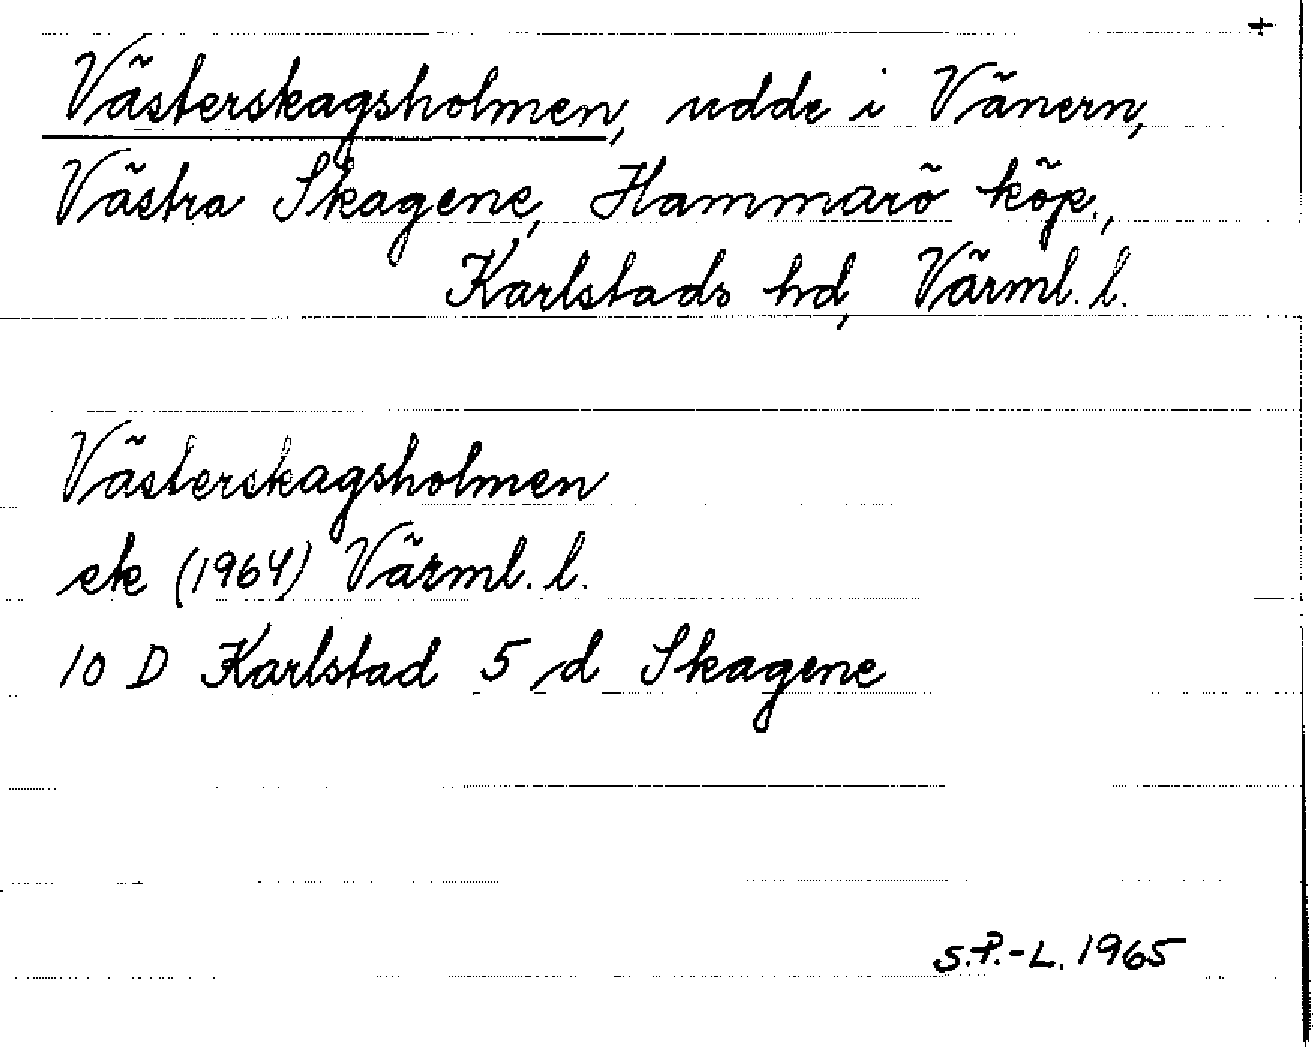 Västerskagsholmen, udde i Vänern,
Västra Skagene, Hammarö köp.,
Karlstads hd, Värml. l.
Västerskagsholmen
ek (1964) Värml. l.
10 D Karlstad 5 d Skagene
S.P.-L. 1965